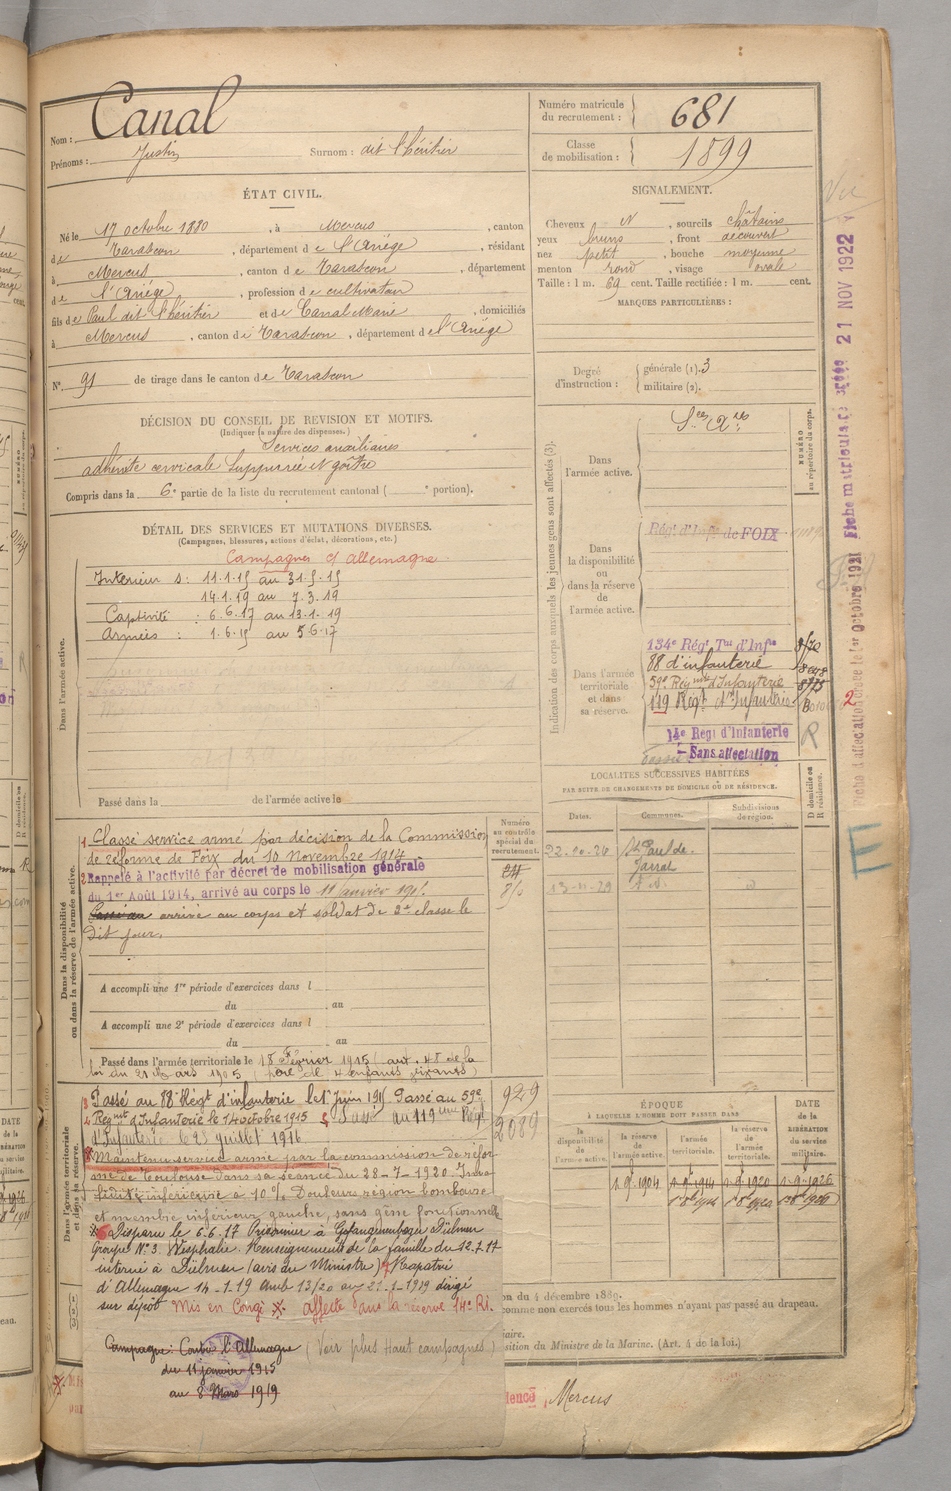 Nom : Canal
Prénoms : Justin Surnom : dit l'héritier
Numéro matricule du recrutement : 681
Classe de mobilisation : 1899
ÉTAT CIVIL.
Né le 17 octobre 1880, à Mercus, canton
de Tarascon, département de l'Ariège, résidant
à Mercus, canton de Tarascon, département
de l'Ariège, profession de cultivateur
fils de Paul dit l'héritier et de Canal Marie, domiciliés
à Mercus, canton de Tarascon, département de l'Ariège
N° 91 de tirage dans le canton de Tarascon
SIGNALEMENT.
Cheveux N, sourcils châtains
yeux bruns, front découvert
nez petit, bouche moyenne
menton rond, visage ovale
Taille : 1 m. 69 cent. Taille rectifiée : 1 m. cent.
MARQUES PARTICULIÈRES :
Degré d'instruction : générale (1). 3
militaire (2).
DÉCISION DU CONSEIL DE REVISION ET MOTIFS.
(Indiquer la nature des dispenses.)
Services auxiliaires
adénite cervicale suppurée et goître
Compris dans la 6e partie de la liste du recrutement cantonal ( e portion).
DÉTAIL DES SERVICES ET MUTATIONS DIVERSES.
(Campagnes, blessures, actions d'éclat, décorations, etc.)
Campagnes c/ allemagne
Intérieur S: 11.1.15 au 31.5.15
14.1.19 au 7.3.19
Captivité : 6.6.17 au 13.1.19
Armées : 1.6.15 au 5.6.17
Dans l'armée active.
Passé dans la de l'armée active le
Indication des corps auxquels les jeunes gens sont affectés (3).
NUMÉRO au répertoire du corps.
Dans l'armée active.
Dans la disponibilité ou dans la réserve de l'armée active.
Régt d'Infie de FOIX
Dans l'armée territoriale et dans sa réserve.
134e Régt Tal d'Infie
88 d'infanterie
59e Régiment d'Infanterie
119 Régt d'Infanterie
14e Régt d'Infanterie
Sans affectation
R
2
LOCALITÉS SUCCESSIVES HABITÉES
PAR SUITE DE CHANGEMENTS DE DOMICILE OU DE RÉSIDENCE.
Dates. Communes. Subdivisions de région. D domicile ou R résidence.
St Paul de Jarrat
Numéro au contrôle spécial du recrutement.
Dans la disponibilité ou dans la réserve de l'armée active.
1 Classé service armé par décision de la Commission
de réforme de Foix du 10 Novembre 1914
2 Rappelé à l'activité par décret de mobilisation générale
du 1er Août 1914, arrivé au corps le 11 Janvier 191.
arrivé au corps et soldat de 2e classe le
dit jour.
A accompli une 1re période d'exercices dans l
du au
A accompli une 2e période d'exercices dans l
du au
Passé dans l'armée territoriale le 18 Février 1915 (art. 48 de la
loi du 21 Mars 1905 (père de 4 enfants vivants)
Dans l'armée territoriale et dans sa réserve.
3 Passé au 88 Régt d'infanterie le 1er juin 1915 Passé au 59e
4 Régiment d'Infanterie le 14 octobre 1915 5 Passé au 119ème Régt
d'Infanterie le 25 juillet 1916
8 Maintenu service armé par la commission de réfor-
me de Toulouse dans sa séance du 28-7-1920. Inva-
lidité inférieure à 10% Douleurs région lombaire
et membre inférieur gauche, sans gêne fonctionnelle
6 Disparu le 6.6.17 Prisonnier à Gefangenenlager Dülmen
Groupe N° 3. Wesphalie. Renseignements de la famille du 12.7.17
interné à Dülmen (avis du Ministre) Rapatrié
d'Allemagne 14-1.19 dirigé
sur dépôt Mis en Congé affecté dans la réserve 14e RI.
Campagne : Contre l'Allemagne (Voir plus Haut campagnes)
du 11 janvier 1915
au 8 Mars 1919
929
2089
ÉPOQUE
À LAQUELLE L'HOMME DOIT PASSER DANS
la disponibilité de l'armée active. la réserve de l'armée active. l'armée territoriale. la réserve de l'armée territoriale.
DATE de la LIBÉRATION du service militaire.
on du 4 décembre 1889.
comme non exercés tous les hommes n'ayant pas passé au drapeau.
aire.
sition du Ministre de la Marine. (Art. 4 de la loi.)
dence, Mercus
21 NOV 1922
E